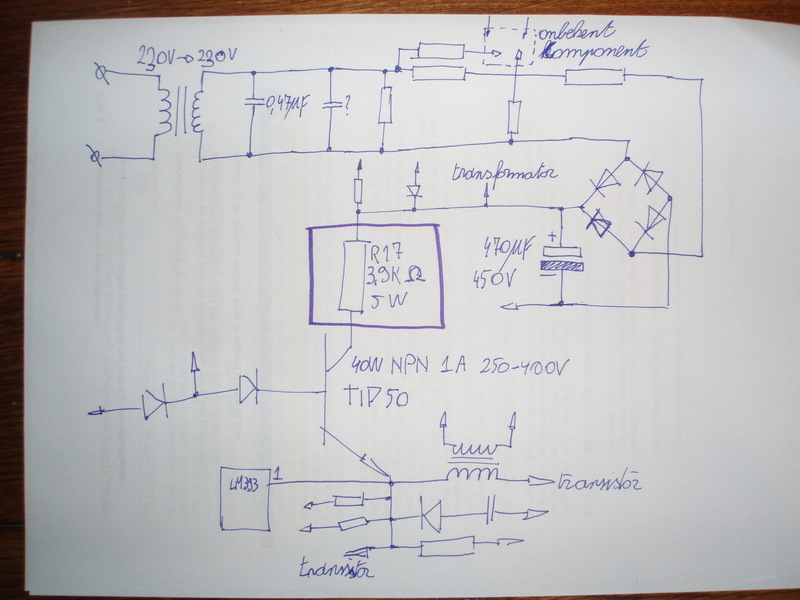 230V → 230V
onbekent
komponent
0,47µF
?
transformator
R17
3,9K Ω
5W
470µF
450V
+
40W NPN 1A 250-400V
TIP50
LM393
1
transistor
transistor